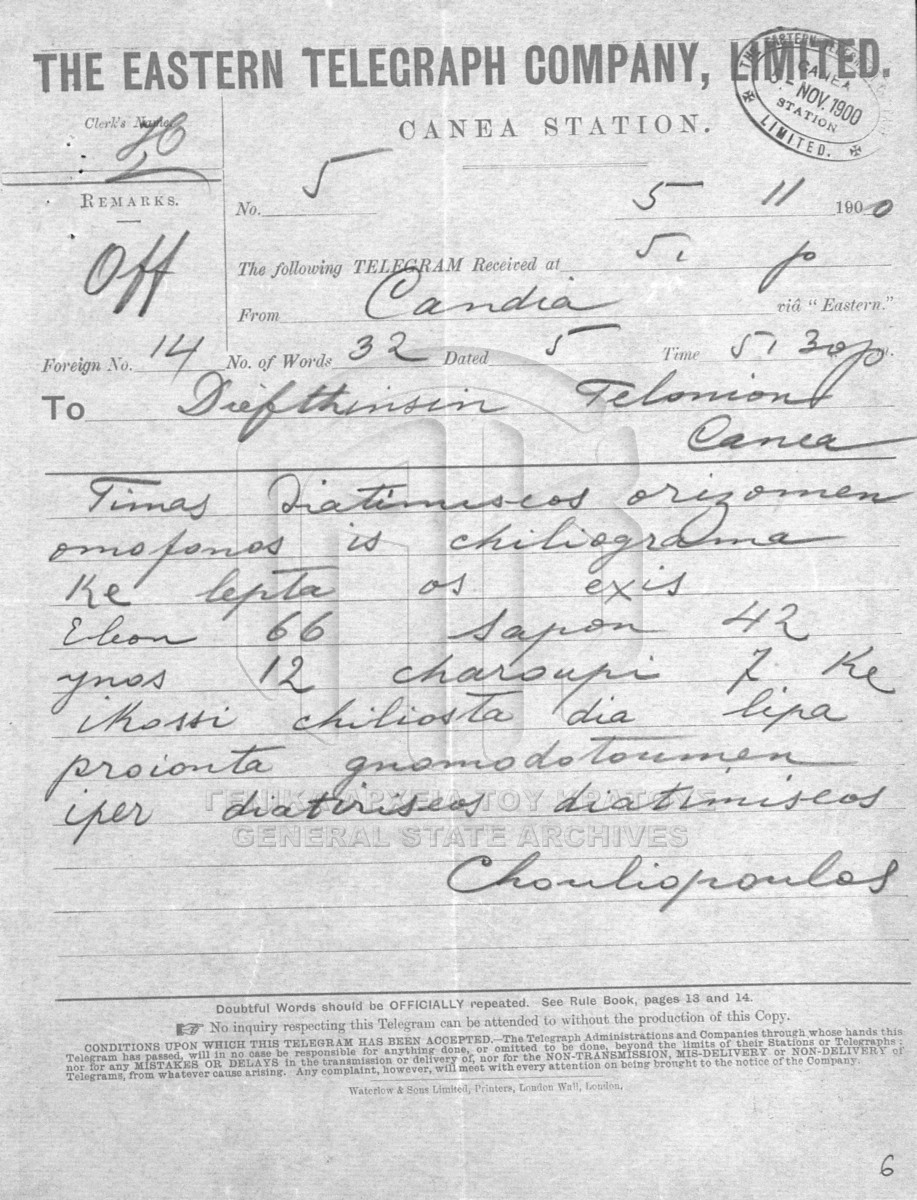 THE EASTERN TELEGRAPH COMPANY, LIMITED.
THE EASTERN
CANEA
NOV. 1900
STATION
LIMITED.
Clerk's Name
CANEA STATION.
REMARKS.
Off
No. 5
5 11 1900
The following TELEGRAM Received at 5, p
From Candia viâ "Eastern."
Foreign No. 14 No. of Words 32 Dated 5 Time 5, 30 p
To Diefthinsin Telonion
Canea
Timas diatimiseos orizomen
omofonos is chiliograma
Ke lepta os exis
Eleon 66 sapon 42
ynos 12 charoupi 7 Ke
iKossi chiliosta dia lipa
proionta gnomodotoumen
iper diatiriseos diatimiseos
Chouliopoulos
ΓΕΝΙΚΑ ΑΡΧΕΙΑ ΤΟΥ ΚΡΑΤΟΥΣ
GENERAL STATE ARCHIVES
Doubtful Words should be OFFICIALLY repeated. See Rule Book, pages 13 and 14.
No inquiry respecting this Telegram can be attended to without the production of this Copy.
CONDITIONS UPON WHICH THIS TELEGRAM HAS BEEN ACCEPTED.—The Telegraph Administrations and Companies through whose hands this
Telegram has passed, will in no case be responsible for anything done, or omitted to be done, beyond the limits of their Stations or Telegraphs;
nor for any MISTAKES OR DELAYS in the transmission or delivery of, nor for the NON-TRANSMISSION, MIS-DELIVERY or NON-DELIVERY of
Telegrams, from whatever cause arising. Any complaint, however, will meet with every attention on being brought to the notice of the Company.
Waterlow & Sons Limited, Printers, London Wall, London.
6